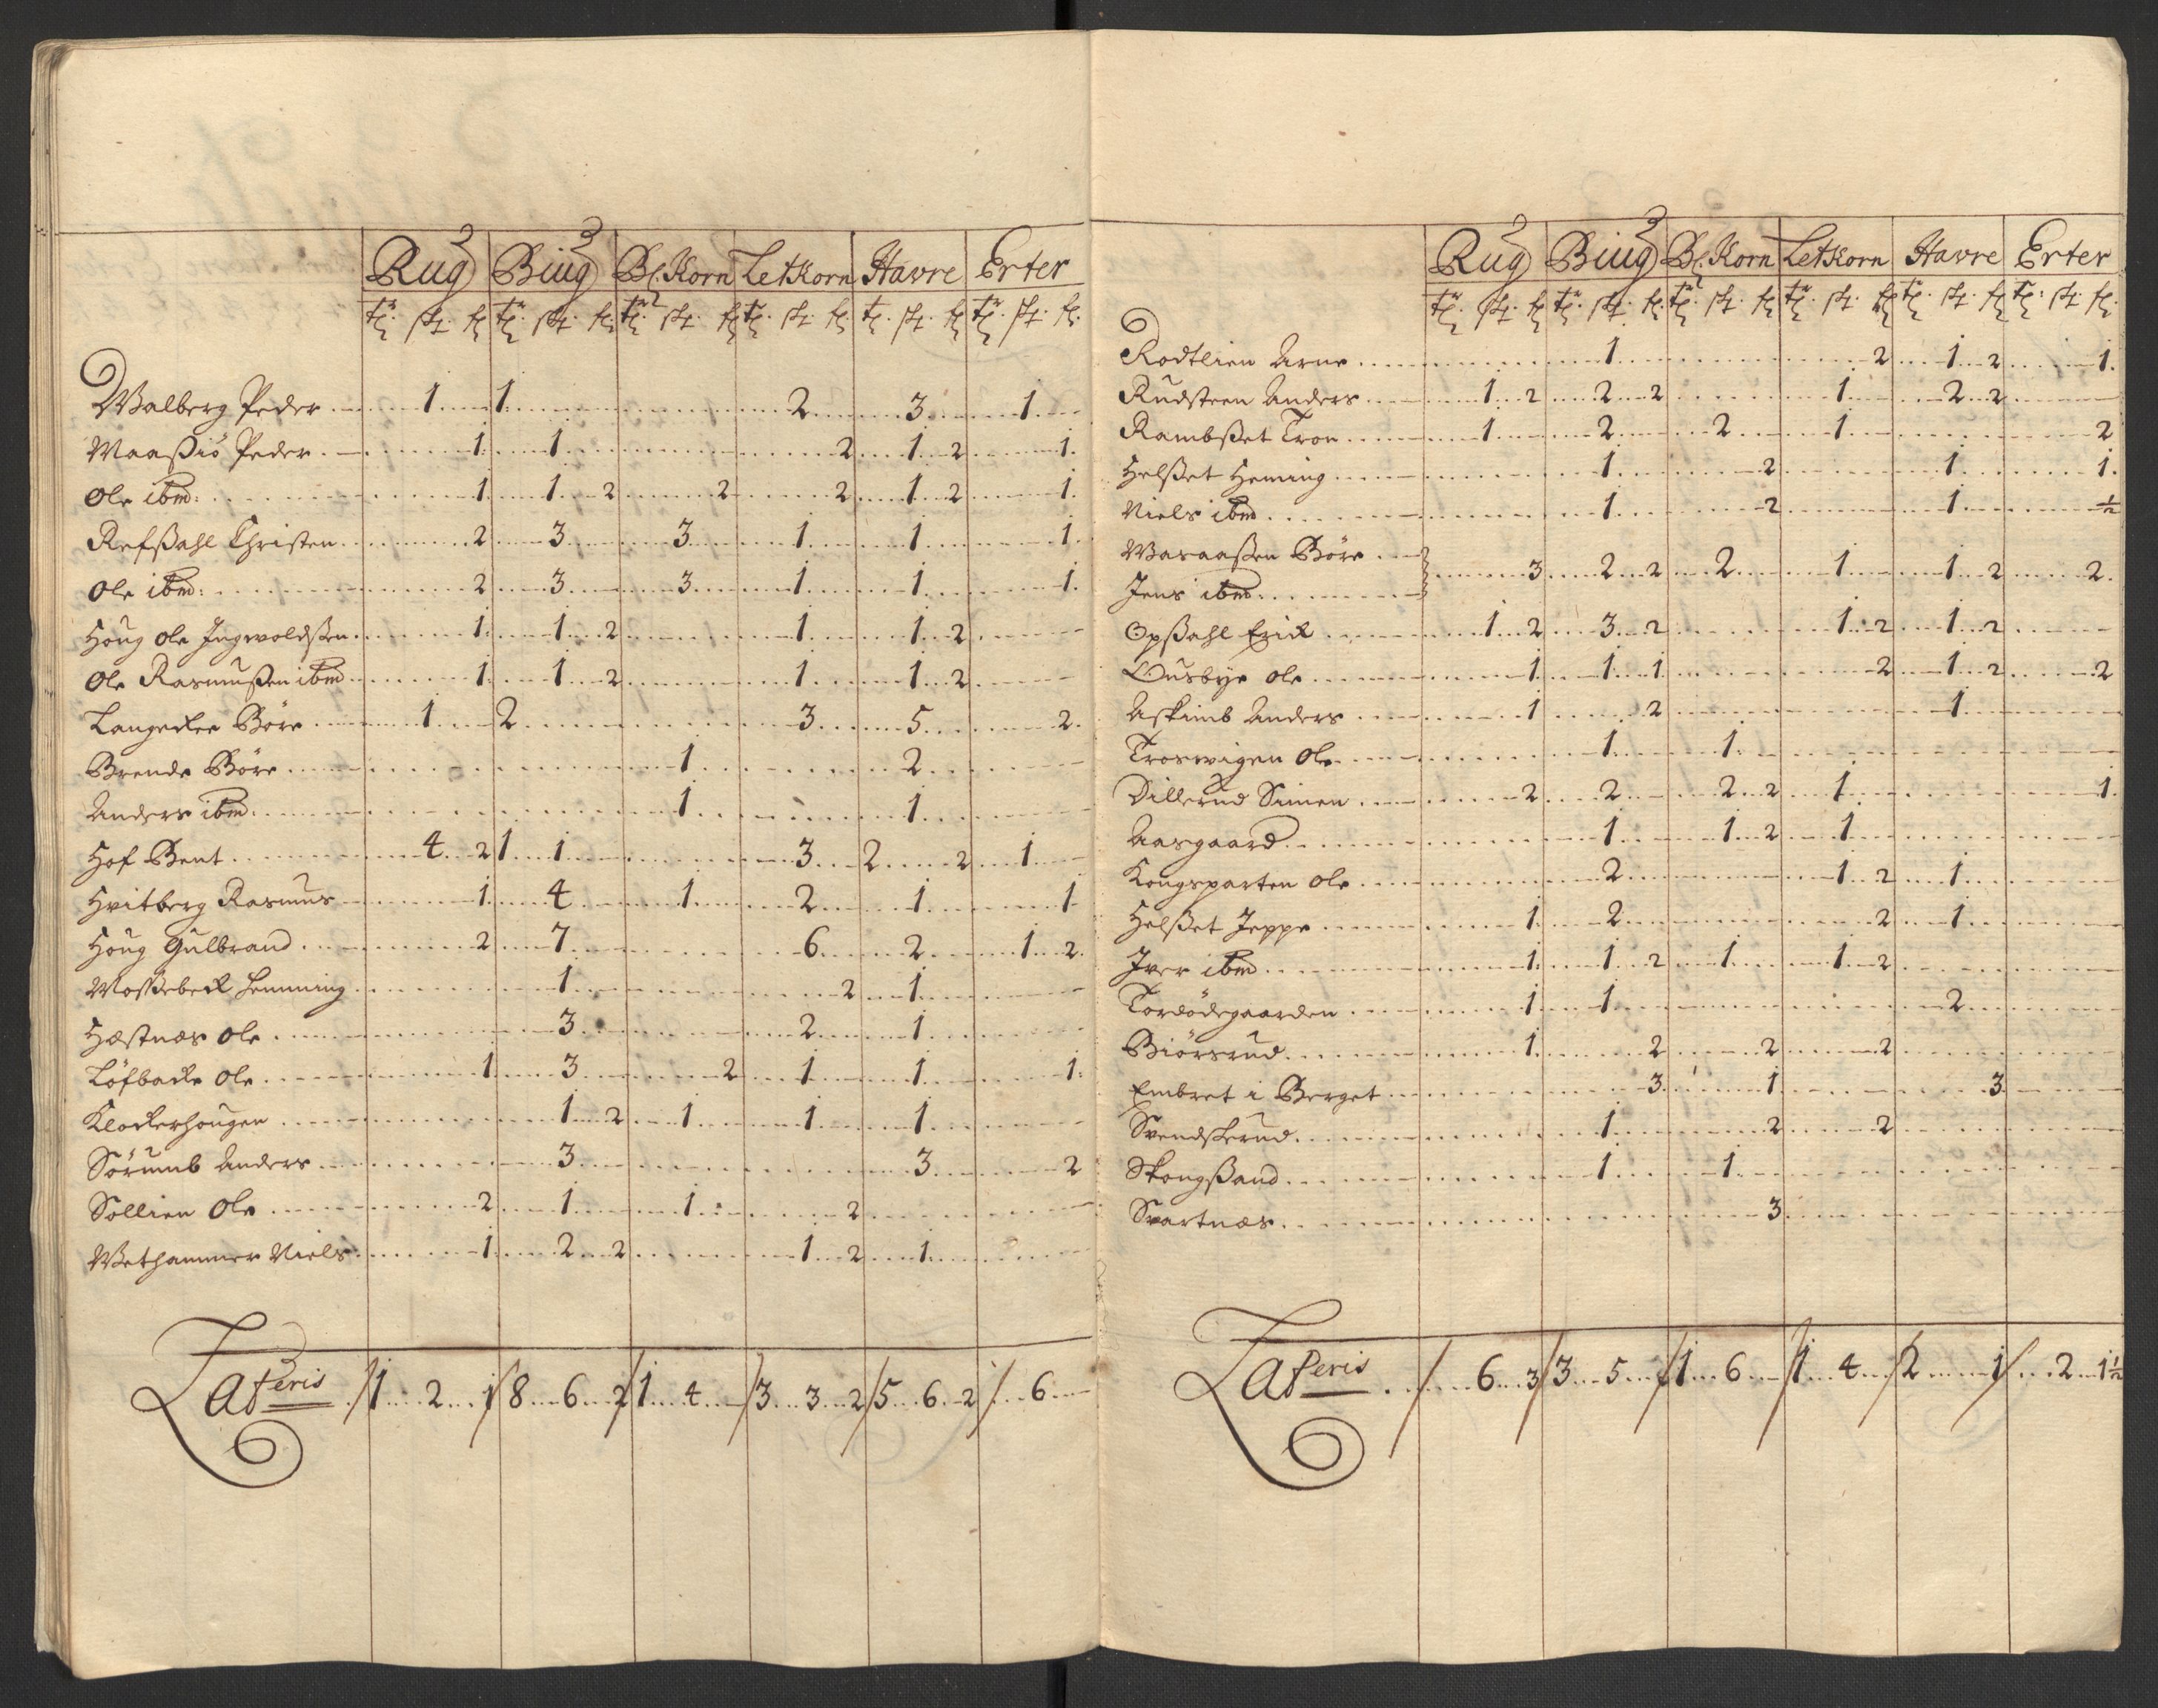 Rug Biug Bl. Korn Letkorn Havre Erter
Walberg Peder 1 1 2 3 1
Maaßiö Peder 1 1 2 1 2 1
Ole ibm: 1 1 2 2 2 1 2 1
Refßahl Christen 2 3 3 1 1 1
Ole ibm: 2 3 3 1 1 1
Houg Ole Ingwoldßen 1 1 2 1 1 2
Ole Rasmußen ibm 1 1 2 1 1 2
Langeckre Börr 1 2 3 5 2
Brende Börr 1 2
Anders ibm: 1 1
Hof Bent 4 2 1 1 3 2 2 1
Hvitberg Rasmus 1 4 1 2 1 1
Houg Gulbrand 2 7 6 2 1 2
Moßebeck Hemming 1 2 1
Hæstnæs Ole 3 2 1
Löfbacke Ole 1 3 2 1 1 1
Klockerhougen 1 2 1 1 1
Sörumb Anders 3 3 2
Sollien Ole 2 1 1 2
Wethammer Niels 1 2 2 1 2 1
Lateris 1 2 1 8 6 2 1 4 3 3 2 5 6 2 6
Rug Biug Bl. Korn Letkorn Havre Erter
Rodtlien Arne 1 2 1 2 1
Rudsteen Anders 1 2 2 2 1 2 2
Rambßet Tron 1 2 2 1 2
Helßet Heming 1 2 1 1
Niels ibm 1 2 1 ½
Waraaßen Börr
Jens ibm 3 2 2 2 1 1 2 2
Opßahl Erick 1 2 3 2 1 2 1 2
Ousbye Ole 1 1 1 2 1 2 2
Askimb Anders 1 2 1
Troswigen Ole 1 1
Dillerud Simen 2 2 2 2 1 1
Aasgaard 1 1 2 1
Kongsparten Ole 2 1 2 1
Helßet Jeppe 1 2 2 1
Iver ibm 1 1 2 1 1 2
Tordödegaarden 1 1 2
Biörsrud 1 2 2 2
Embret i Berget 3 1 3
Svendskerud 1 2 2
Skougßand 1 1
Svartnæs 3
Lateris 6 3 3 5 1 6 1 4 2 1 2 1½